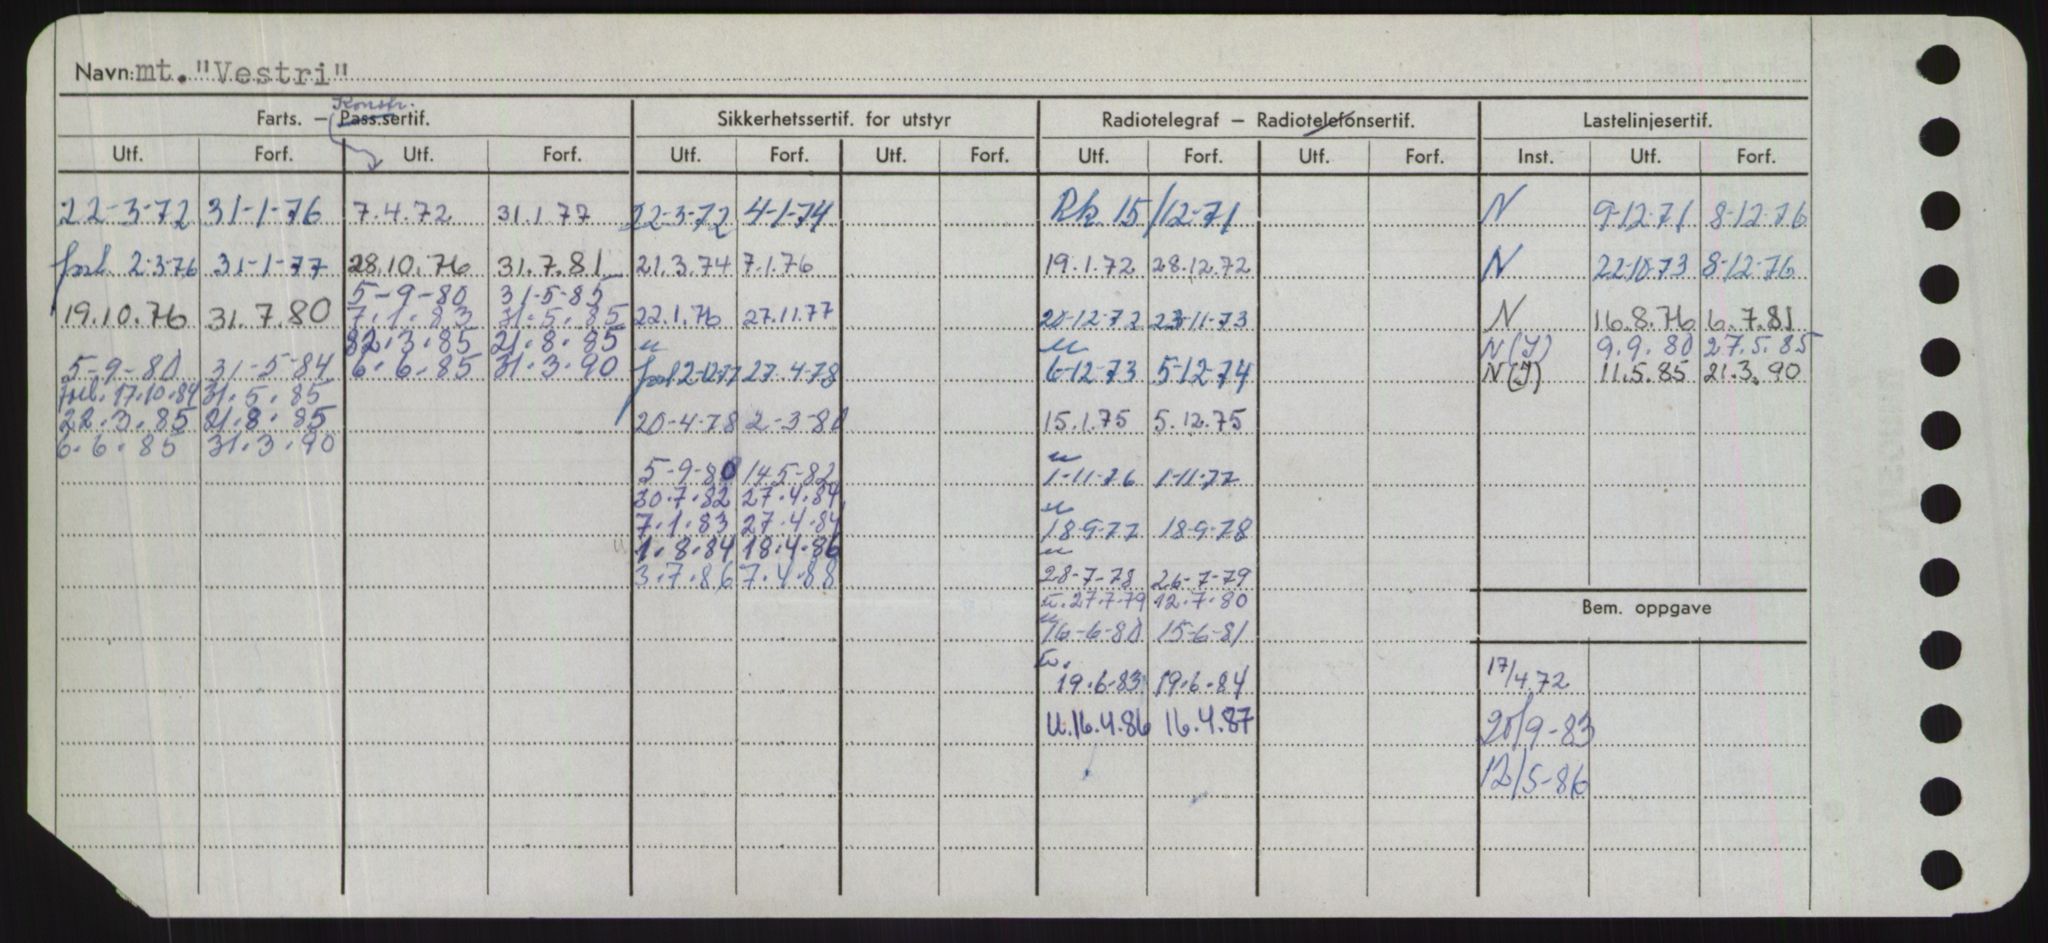 Navn: mt. "Vestri"
Konstr.
Farts. — Pass.sertif. Sikkerhetssertif. for utstyr Radiotelegraf — Radiotelefonsertif. Lastelinjesertif.
Utf. Forf. Utf. Forf. Utf. Forf. Utf. Forf. Utf. Forf. Utf. Forf. Inst. Utf. Forf.
22-3-72 31-1-76 7.4.72 31.1.77 22-3-72 4-1-74 Rk 15/12-71 N 9-12-71 8-12-76
forl 2-3-76 31-1-77 28.10.76 31.7.81 21.3.74 7.1.76 19.1.72 28.12.72 N 22-10-73 8-12-76
5-9-80 31-5-85
19.10.76 31.7.80 7.1.83 31.5.85 22.1.76 27.11.77 20-12-72 23-11-73 N 16.8.76 6.7.81
22.3.85 21.8.85 u u N(I) 9.9.80 27.5.85
5-9-80 31-5-84 6.6.85 31.3.90 forl 2-12-77 27.4-78 6-12-73 5-12-74 N(I) 11.5.85 21.3.90
forl. 17.10.84 31.5.85
22.3.85 21.8.85 20-4-78 2-3-80 15.1.75 5.12.75
6.6.85 31.3.90
u
5-9-80 14.5-82 1-11-76 1-11-77
30.7.82 27.4.84
u
7.1.83 27.4.84 18-9-77 18-9-78
u 1.8.84 18.4.86 u
3.7.86 7.4.88 28-7-78 26-7-79
u. 27.7.79 12.7.80 Bem. oppgave
u
16-6-80 15-6-81
u.
19.6-83 19.6.84 17/4.72
u. 16.4.86 16.4.87 20/9-83
12/5-86